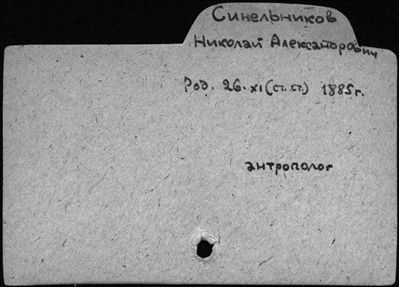 Синельников
Николай Александрович
Род. 26. XI (ст. ст.) 1885 г.
антрополог